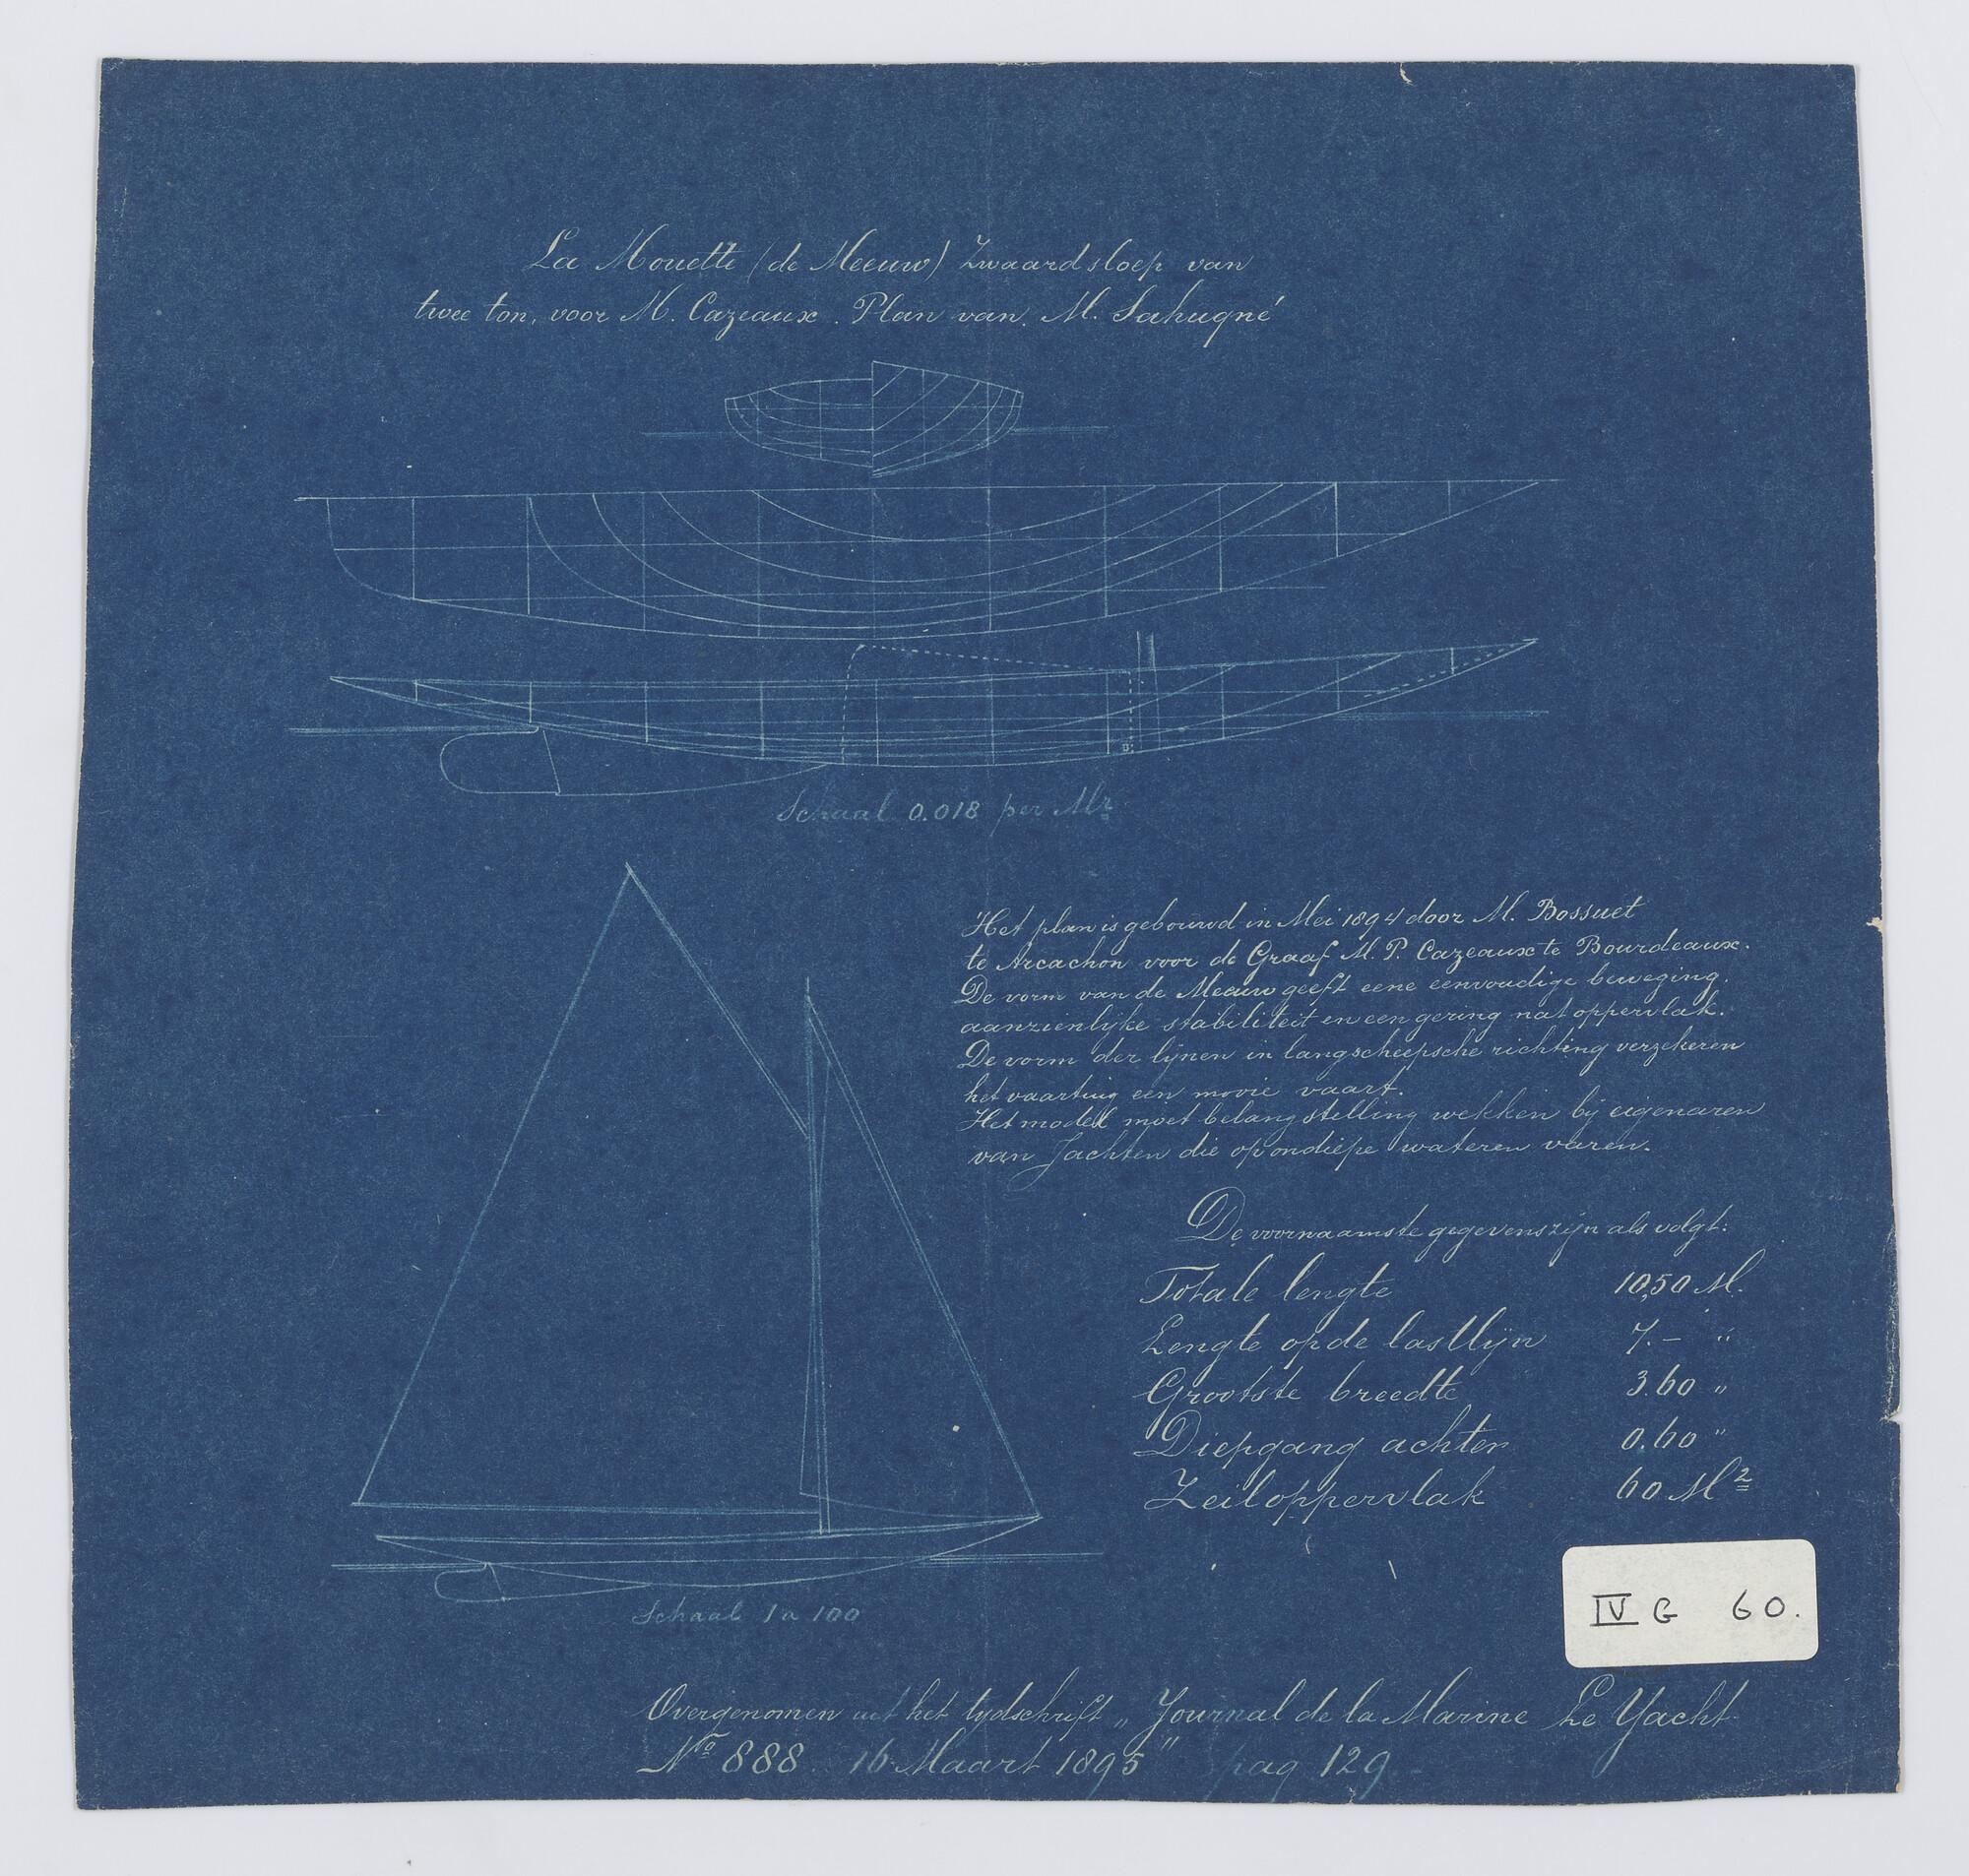 La Mouette (de Meeuw) Zwaardsloep van
twee ton, voor M. Cazeaux. Plan van M. Sahuqné
Schaal 0.018 per Mr
Het plan is gebouwd in Mei 1894 door M. Bossuet
te Arcachon voor de Graaf M. P. Cazeaux te Bourdeaux.
De vorm van de Meeuw geeft eene eenvoudige beweging,
aanzienlijke stabiliteit en een gering nat oppervlak.
De vorm der lijnen in langscheepsche richting verzekeren
het vaartuig een mooie vaart.
Het model moet belangstelling wekken bij eigenaren
van Jachten die op ondiepe wateren varen.
De voornaamste gegevens zijn als volgt:
Totale lengte 10,50 M.
Lengte op de lastlijn 7.– "
Grootste breedte 3.60 "
Diepgang achter 0.60 "
Zeiloppervlak 60 M²
Schaal 1 a 100
IV G 60.
Overgenomen uit het tydschrift „Journal de la Marine Le Yacht
No 888. 16 Maart 1895" pag 129.